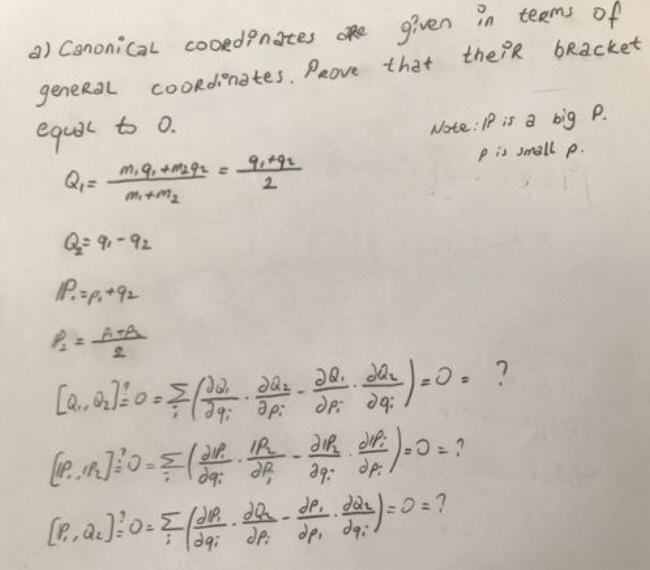 a) Canonical coordinates are given in terms of
general coordinates. Prove that their bracket
equal to 0.
Note: ℙ is a big P.
p is small p.
Q₁ = (m₁q₁ + m₂q₂)/(m₁ + m₂) = (q₁ + q₂)/2
Q₂ = q₁ - q₂
ℙ₁ = p₁ + q₂
P₂ = (p₁ + p₂)/2
[Q₁, Q₂] ≟ 0 = Σᵢ (∂Q₁/∂qᵢ · ∂Q₂/∂pᵢ - ∂Q₁/∂pᵢ · ∂Q₂/∂qᵢ) = 0 = ?
[ℙ₁, ℙ₂] ≟ 0 = Σᵢ (∂ℙ₁/∂qᵢ · ℙ₂/∂Pᵢ - ∂ℙ₂/∂qᵢ · ∂ℙᵢ/∂pᵢ) = 0 = ?
[P₁, Q₂] ≟ 0 = Σᵢ (∂ℙ₁/∂qᵢ · ∂Q₂/∂pᵢ - ∂P₁/∂pᵢ · ∂Q₂/∂qᵢ) = 0 = ?